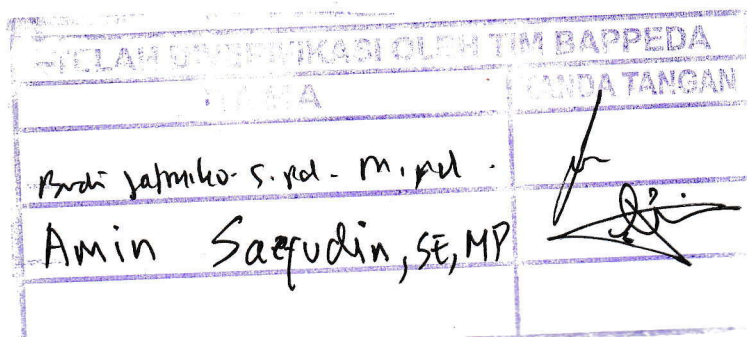 TELAH DIVERIFIKASI OLEH TIM BAPPEDA
NAMA TANDA TANGAN
Budi Jatmiko. S.Pd. M.Pd.
Amin Saefudin, SE, MP